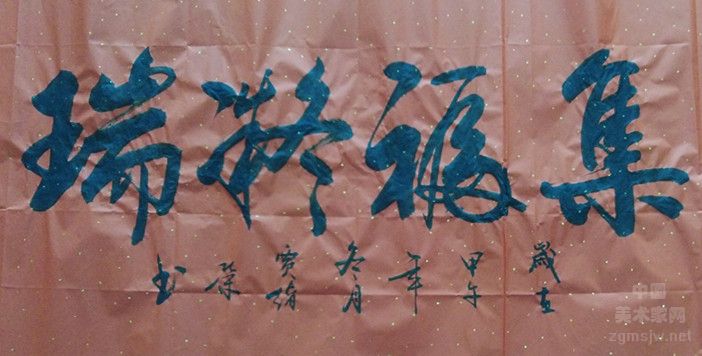 集福凝瑞
歲在甲午年冬月賈荣书
中国
美术家网
zgmsjw.net